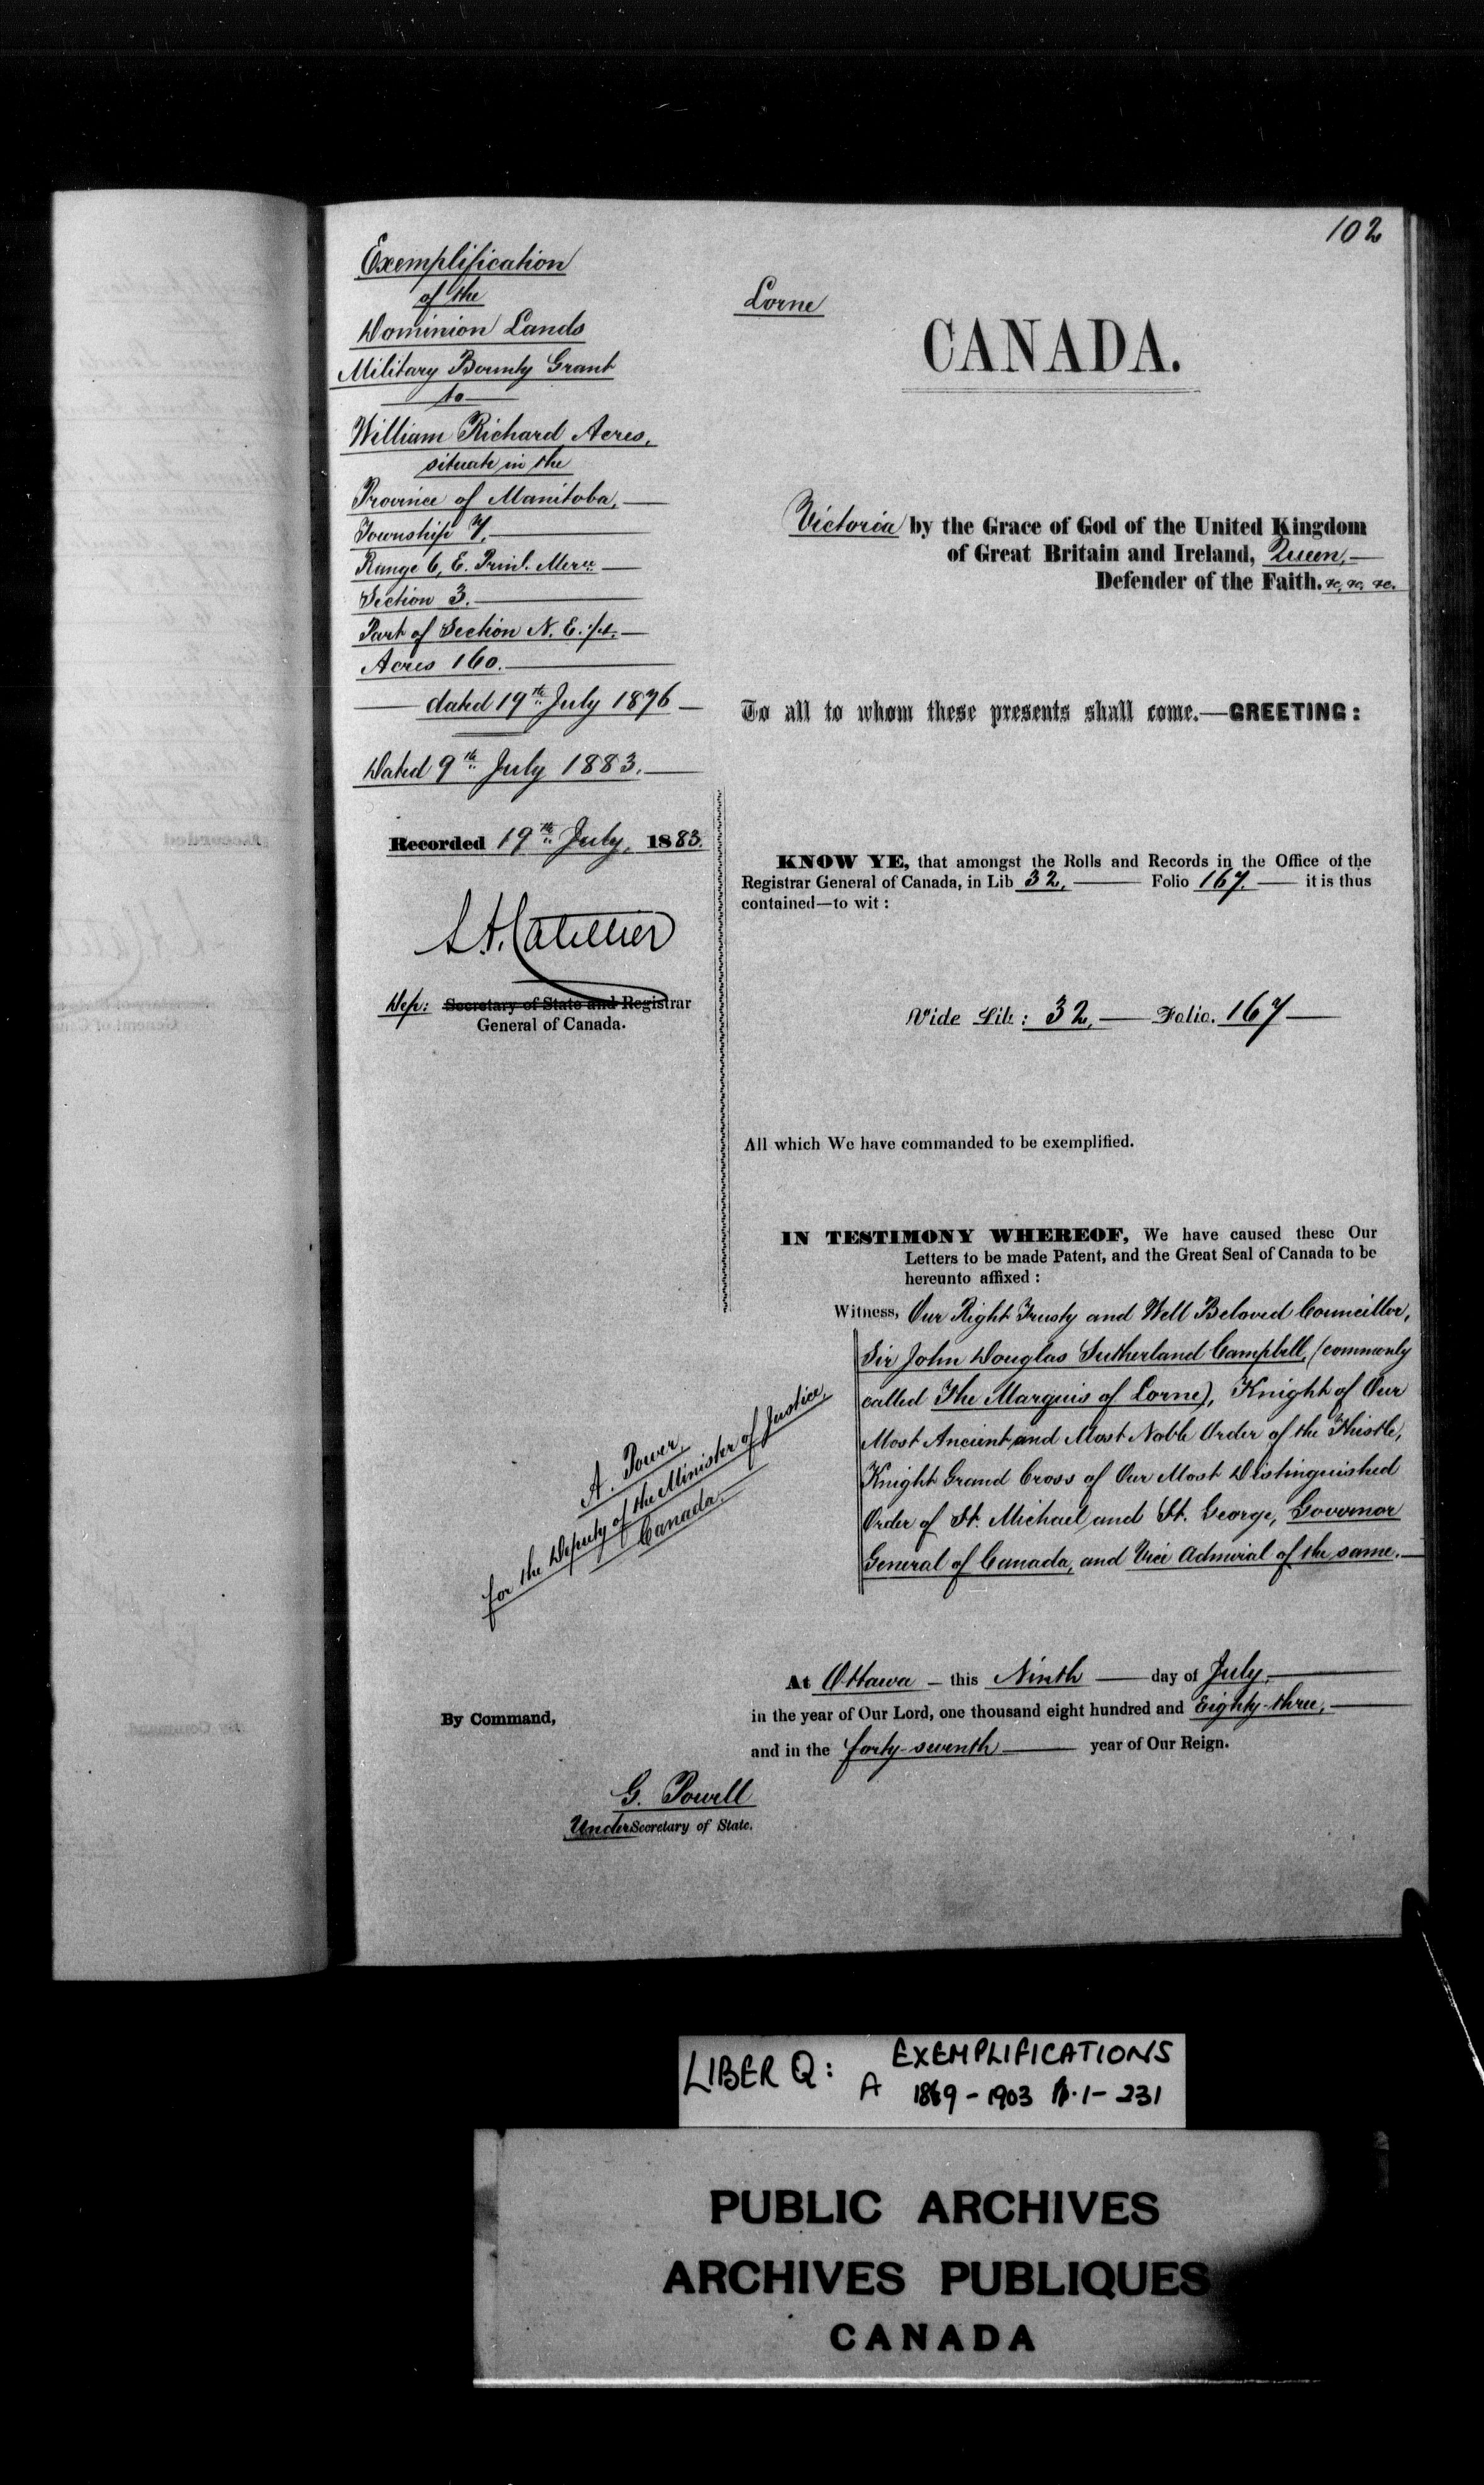 102
Exemplification
of the
Dominion Lands
Military Bounty Grant
to
William Richard Acres,
situate in the
Province of Manitoba,
Township 7,
Range 6, E. Prinl. Mern.
Section 3.
Part of Section N. E. 1/4.
Acres 160.
dated 19th July 1876
Dated 9th July 1883.
Recorded 19th July, 1883.
Dep: Secretary of State and Registrar
General of Canada.
Lorne
CANADA.
Victoria by the Grace of God of the United Kingdom
of Great Britain and Ireland, Queen,
Defender of the Faith. &c, &c, &c.
To all to whom these presents shall come.—GREETING:
KNOW YE, that amongst the Rolls and Records in the Office of the
Registrar General of Canada, in Lib 32, Folio 167. it is thus
contained—to wit:
Vide Lib: 32, Folio. 167
All which We have commanded to be exemplified.
IN TESTIMONY WHEREOF, We have caused these Our
Letters to be made Patent, and the Great Seal of Canada to be
hereunto affixed:
Witness, Our Right Trusty and Well Beloved Councillor,
Sir John Douglas Sutherland Campbell, (commonly
called The Marquis of Lorne), Knight of Our
Most Ancient and Most Noble Order of the Thistle,
Knight Grand Cross of Our Most Distinguished
Order of St. Michael and St. George, Governor
General of Canada, and Vice Admiral of the same.
A. Power,
for the Deputy of the Minister of Justice,
Canada.
At Ottawa this Ninth day of July,
in the year of Our Lord, one thousand eight hundred and Eighty-three,
and in the forty-seventh year of Our Reign.
By Command,
G. Powell
Under Secretary of State.
LIBER Q: A EXEMPLIFICATIONS
1869-1903 p. 1-231
PUBLIC ARCHIVES
ARCHIVES PUBLIQUES
CANADA